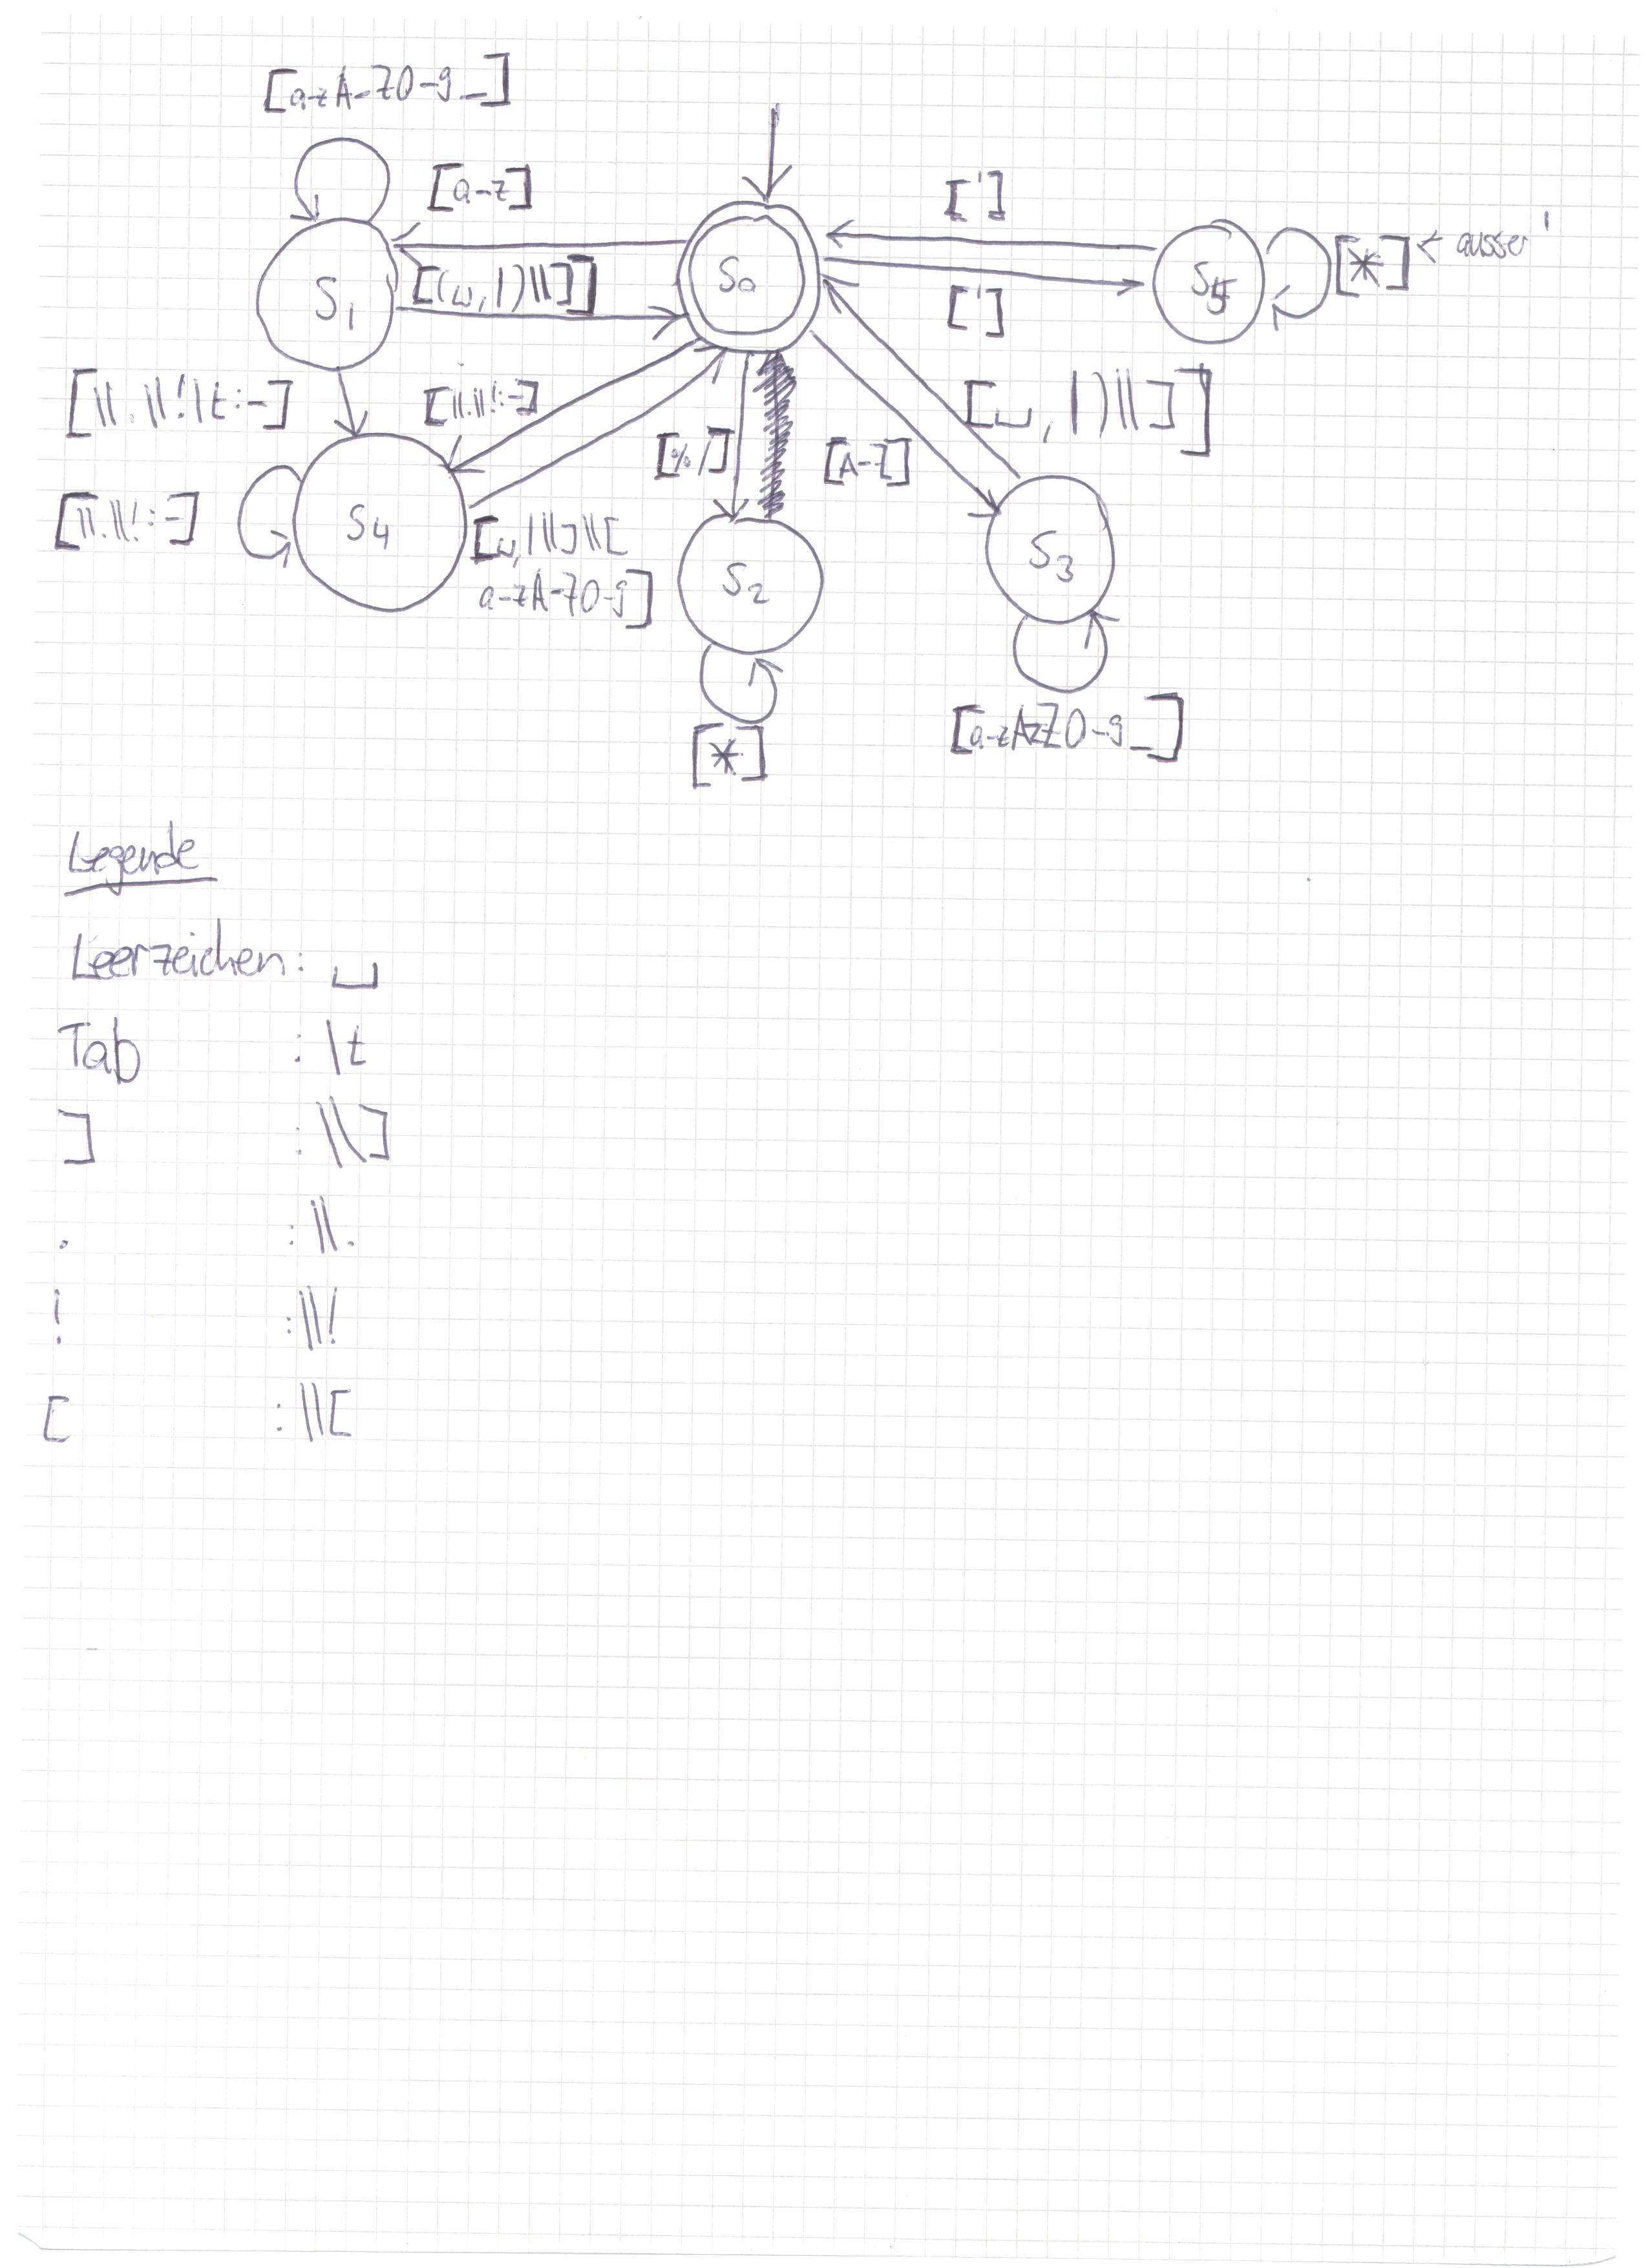 [a-zA-Z0-9_]
[a-z]
[']
S1
[(␣,|)\\]]
S0
[']
S5
[*] < ausser '
[\\.\\!\t:-]
[\\.\\!:-]
[␣,|)\\]]
[%/]
[A-Z]
[\\.\\!:-]
S4
[␣,|\\]\\[
a-zA-Z0-9]
S2
S3
[*]
[a-zA-Z0-9_]
Legende
Leerzeichen: ␣
Tab : \t
] : \\]
. : \\.
! : \\!
[ : \\[